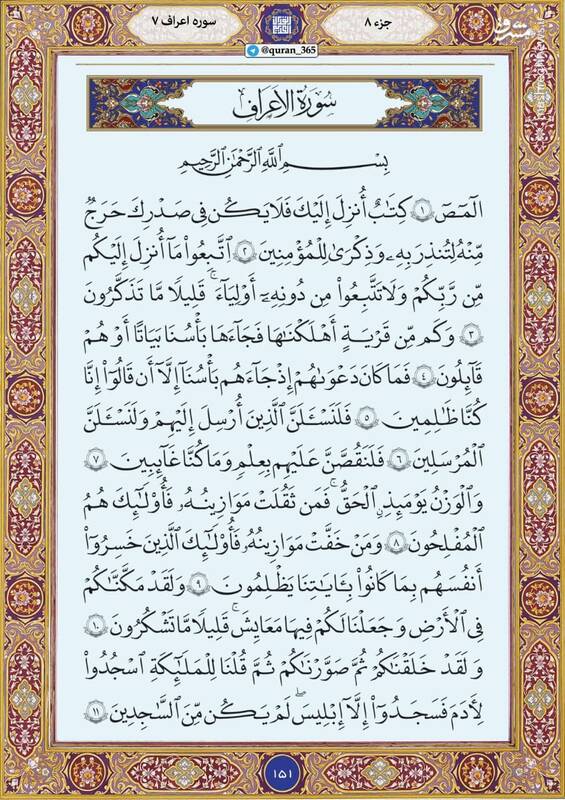 جزء ۸
سوره اعراف ۷
@quran_365
سُورَةُ الأَعراف
بِسْمِ ٱللَّهِ ٱلرَّحْمَٰنِ ٱلرَّحِيمِ
الٓمٓصٓ ۝١ كِتَٰبٌ أُنزِلَ إِلَيْكَ فَلَا يَكُن فِى صَدْرِكَ حَرَجٌ
مِّنْهُ لِتُنذِرَ بِهِۦ وَذِكْرَىٰ لِلْمُؤْمِنِينَ ۝٢ ٱتَّبِعُوا۟ مَآ أُنزِلَ إِلَيْكُم
مِّن رَّبِّكُمْ وَلَا تَتَّبِعُوا۟ مِن دُونِهِۦٓ أَوْلِيَآءَ ۗ قَلِيلًا مَّا تَذَكَّرُونَ
۝٣ وَكَم مِّن قَرْيَةٍ أَهْلَكْنَٰهَا فَجَآءَهَا بَأْسُنَا بَيَٰتًا أَوْ هُمْ
قَآئِلُونَ ۝٤ فَمَا كَانَ دَعْوَىٰهُمْ إِذْ جَآءَهُم بَأْسُنَآ إِلَّآ أَن قَالُوٓا۟ إِنَّا
كُنَّا ظَٰلِمِينَ ۝٥ فَلَنَسْـَٔلَنَّ ٱلَّذِينَ أُرْسِلَ إِلَيْهِمْ وَلَنَسْـَٔلَنَّ
ٱلْمُرْسَلِينَ ۝٦ فَلَنَقُصَّنَّ عَلَيْهِم بِعِلْمٍ وَمَا كُنَّا غَآئِبِينَ ۝٧
وَٱلْوَزْنُ يَوْمَئِذٍ ٱلْحَقُّ ۚ فَمَن ثَقُلَتْ مَوَٰزِينُهُۥ فَأُو۟لَٰٓئِكَ هُمُ
ٱلْمُفْلِحُونَ ۝٨ وَمَنْ خَفَّتْ مَوَٰزِينُهُۥ فَأُو۟لَٰٓئِكَ ٱلَّذِينَ خَسِرُوٓا۟
أَنفُسَهُم بِمَا كَانُوا۟ بِـَٔايَٰتِنَا يَظْلِمُونَ ۝٩ وَلَقَدْ مَكَّنَّٰكُمْ
فِى ٱلْأَرْضِ وَجَعَلْنَا لَكُمْ فِيهَا مَعَٰيِشَ ۗ قَلِيلًا مَّا تَشْكُرُونَ ۝١٠
وَلَقَدْ خَلَقْنَٰكُمْ ثُمَّ صَوَّرْنَٰكُمْ ثُمَّ قُلْنَا لِلْمَلَٰٓئِكَةِ ٱسْجُدُوا۟
لِـَٔادَمَ فَسَجَدُوٓا۟ إِلَّآ إِبْلِيسَ لَمْ يَكُن مِّنَ ٱلسَّٰجِدِينَ ۝١١
۱۵۱